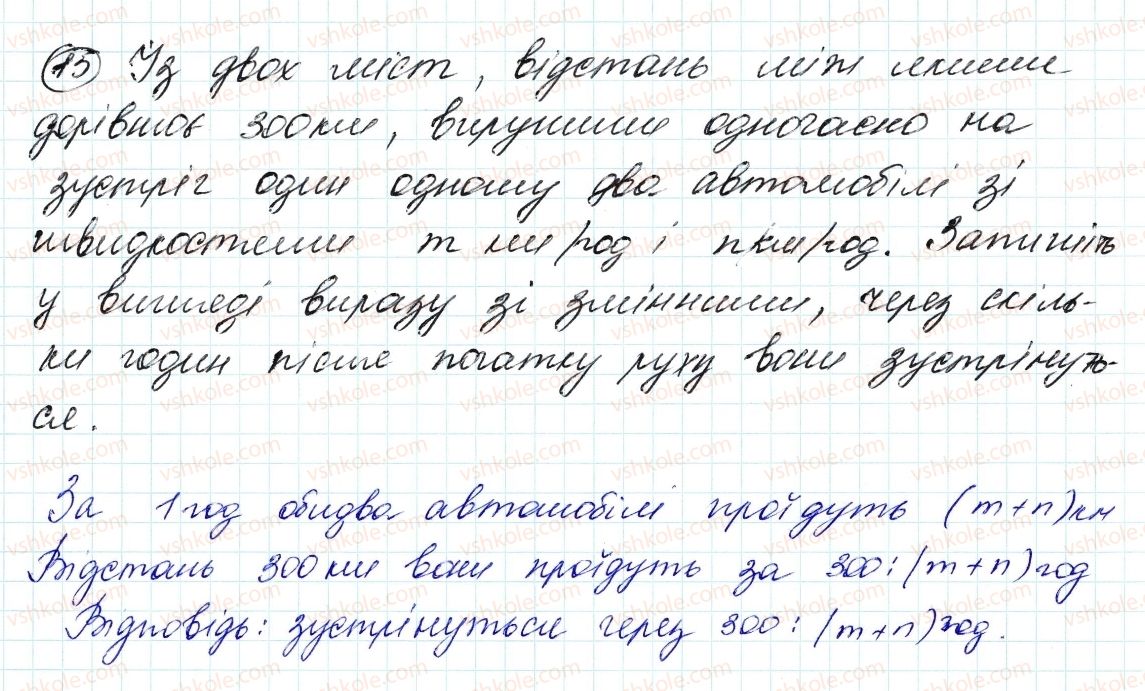 15 Із двох міст, відстань між якими
дорівнює 300 км, вирушили одночасно на
зустріч один одному два автомобілі зі
швидкостями m км/год і n км/год. Запишіть
у вигляді виразу зі змінними, через скіль-
ки годин після початку руху вони зустрінуть-
ся.
За 1 год обидва автомобілі пройдуть (m+n) км
Відстань 300 км вони пройдуть за 300:(m+n) год
Відповідь: зустрінуться через 300:(m+n) год.
vshkole.com